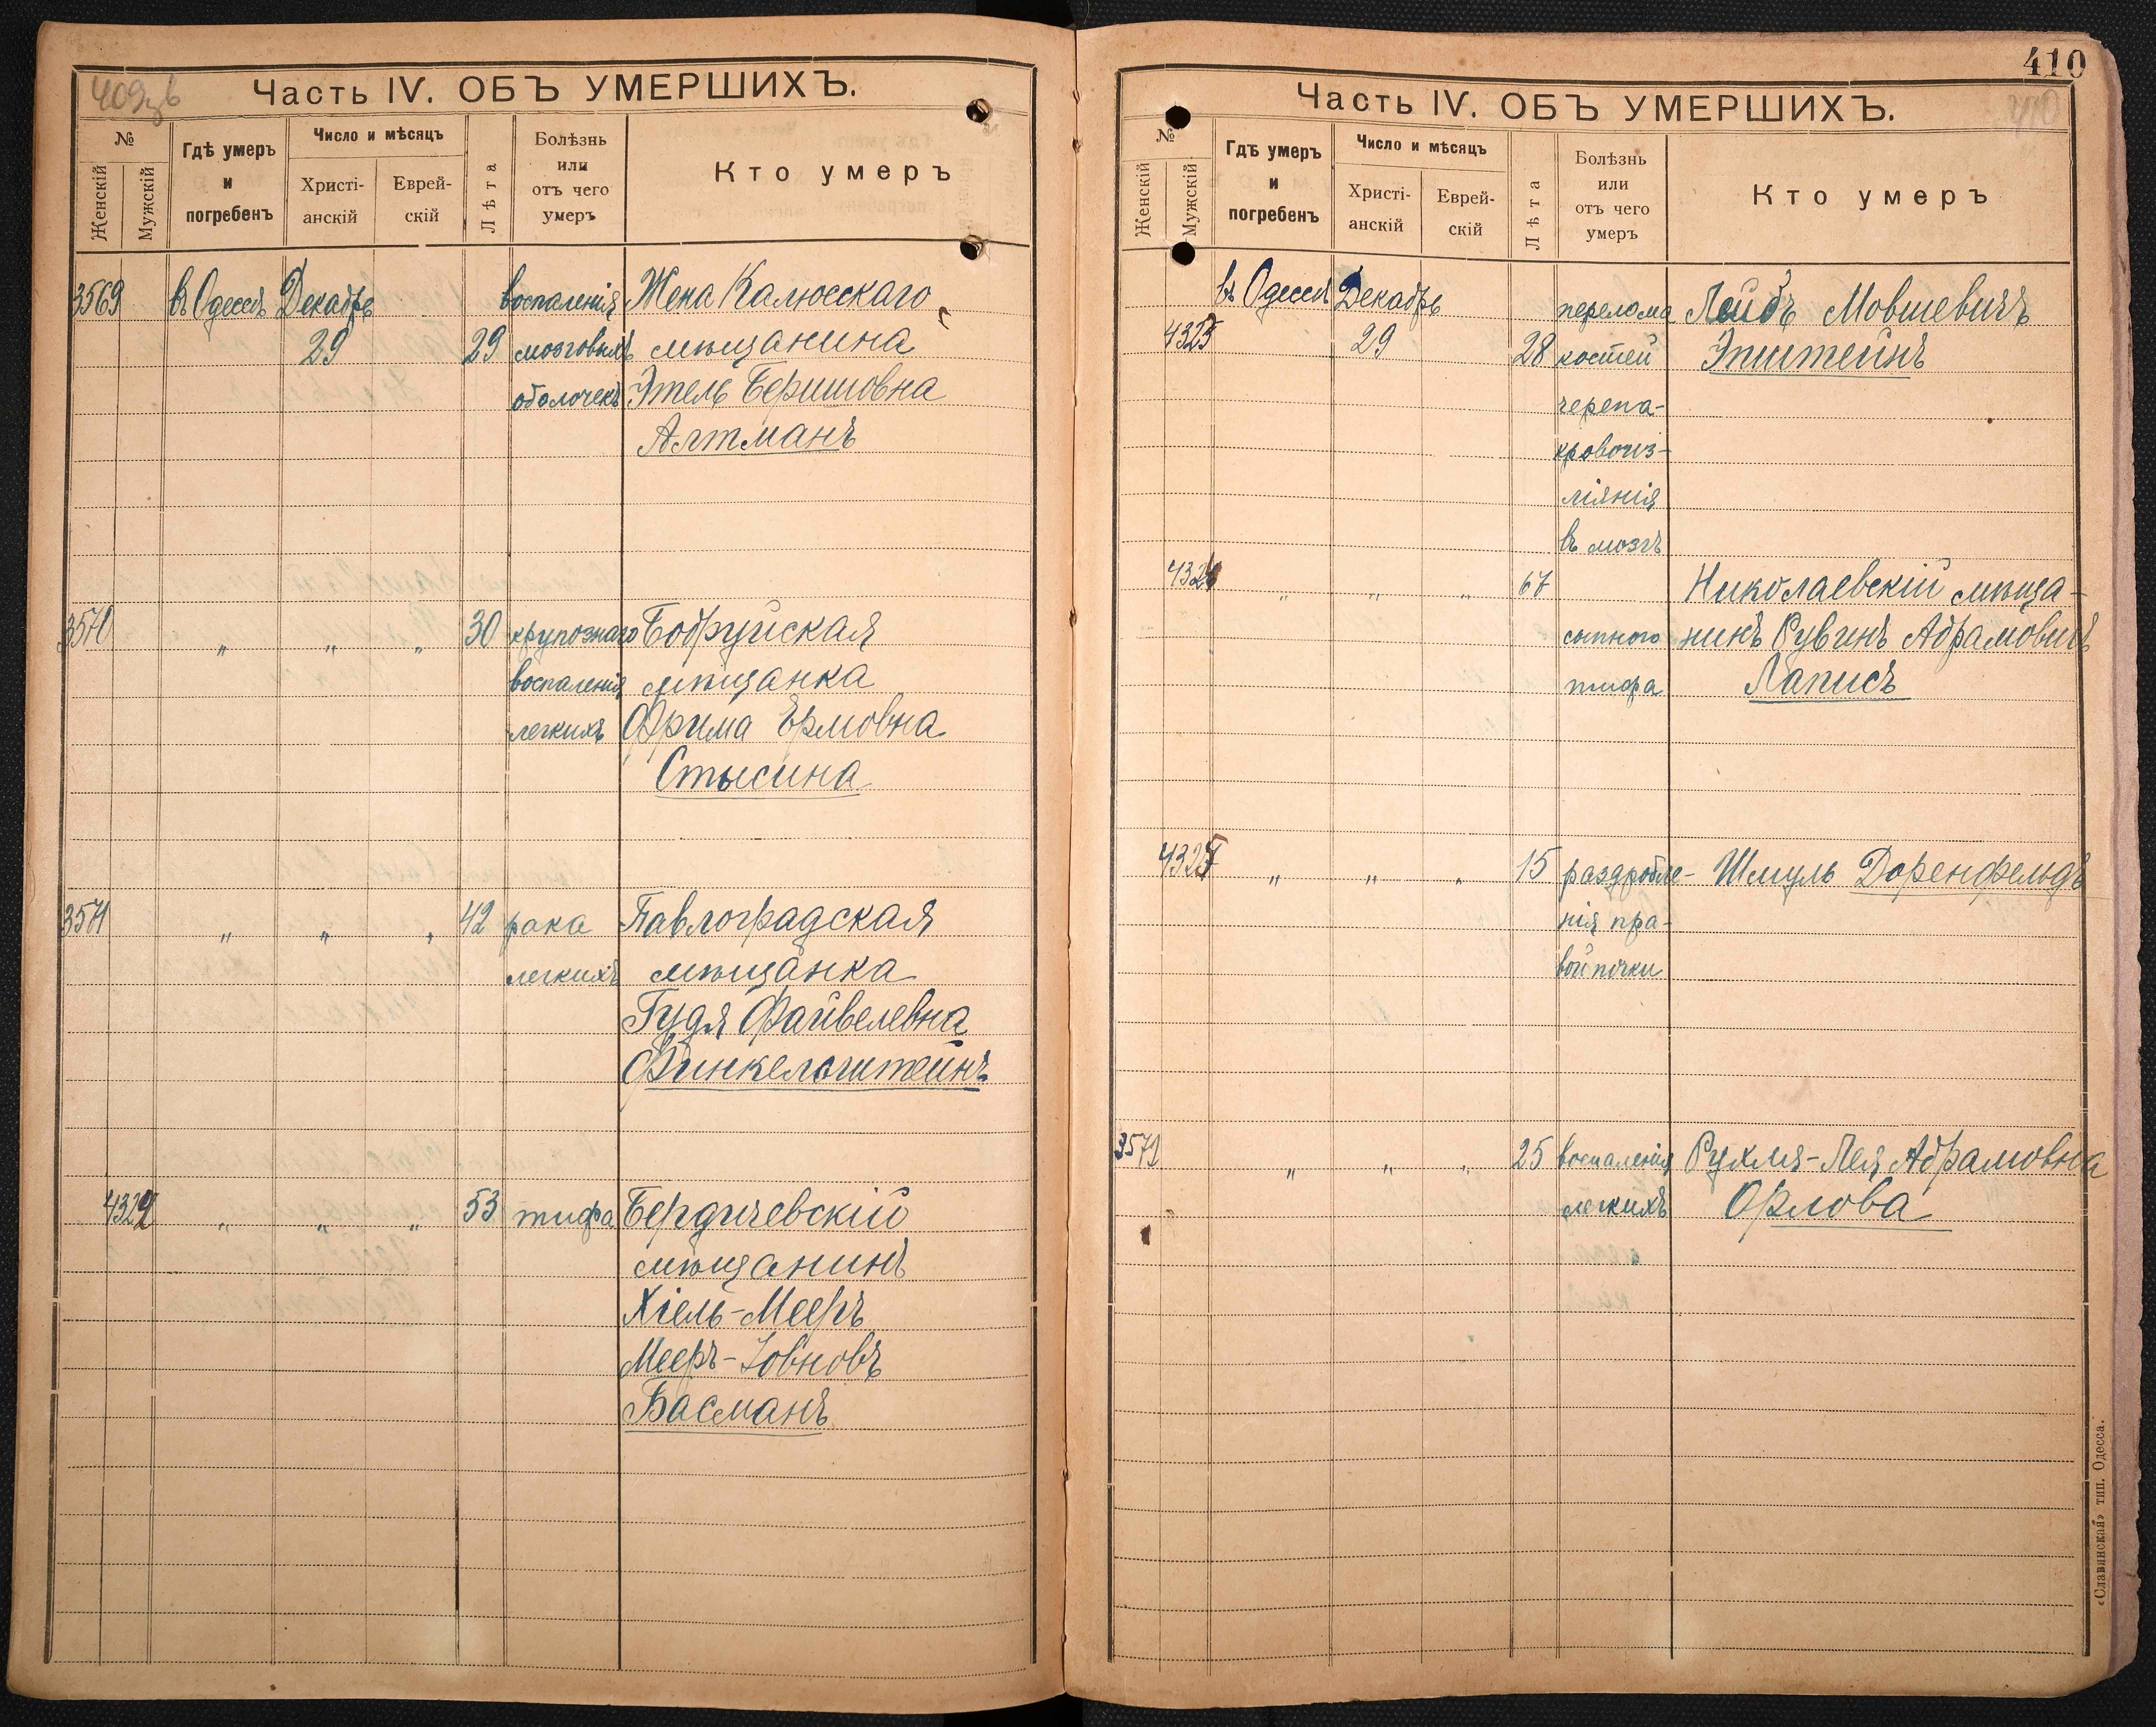 409зв
Часть IV. ОБЪ УМЕРШИХЪ.
№
Женскій
Мужскій
Гдѣ умеръ
и
погребенъ
Число и мѣсяцъ
Христі-
анскій
Еврей-
скій
Лѣта
Болѣзнь
или
отъ чего
умеръ
Кто умеръ
3569 въ Одессѣ Декабрь воспаленія Жена Калюсскаго
29 29 мозговыхъ мѣщанина
оболочекъ Этель Беришовна
Алтманъ
3570 " " " 30 крупознаго Бобруйская
воспаленія мѣщанка
легкихъ Фрима Ермовна
Стысина
3571 " " " 42 рака Павлоградская
легкихъ мѣщанка
Гудя Файвелевна
Финкельштейнъ
4324 " " " 53 тифа Бердичевскій
мѣщанинъ
Хіель-Мееръ
Мееръ-Зовновъ
Басманъ
410
410
Часть IV. ОБЪ УМЕРШИХЪ.
№
Женскій
Мужскій
Гдѣ умеръ
и
погребенъ
Число и мѣсяцъ
Христі-
анскій
Еврей-
скій
Лѣта
Болѣзнь
или
отъ чего
умеръ
Кто умеръ
въ Одессѣ Декабрь перелома Лейбъ Мовшевичъ
4325 29 28 костей Эпштейнъ
черепа-
кровоиз-
ліянія
въ мозгъ
4326 " " " 67 Николаевскій мѣща-
сыпного нинъ Рувинъ Абрамовичъ
тифа Лаписъ
4327 " " " 15 раздробле- Шмуль Доренфельдъ
нія пра-
вой почки
3572 " " " 25 воспаленія Рухля-Лея Абрамовна
легкихъ Орлова
«Славянская» тип. Одесса.